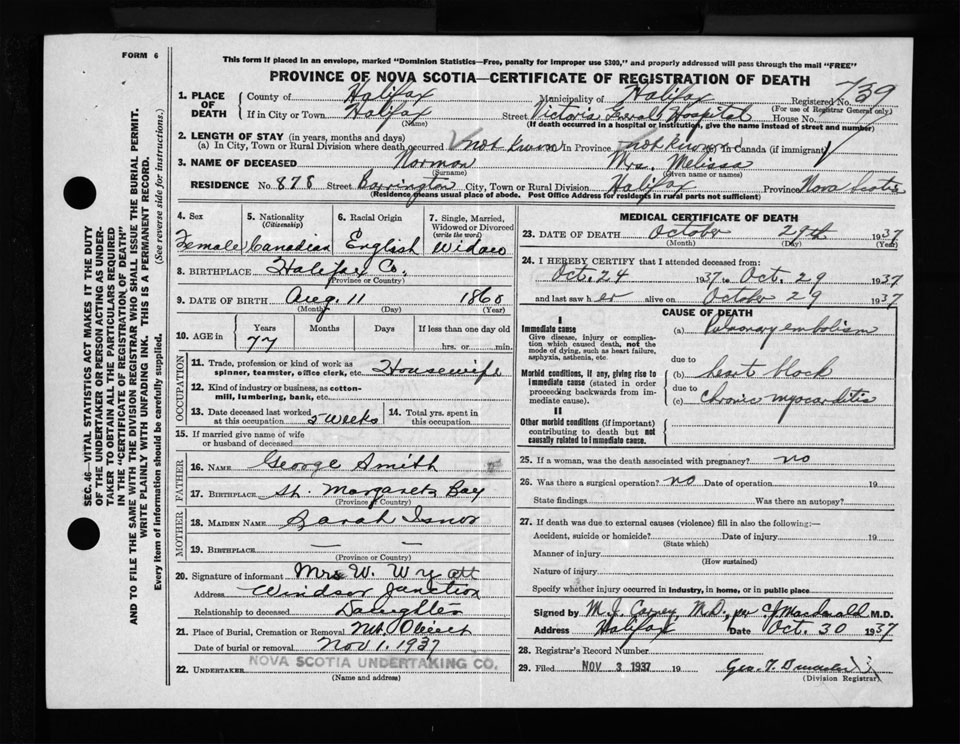 FORM 6
This form if placed in an envelope, marked "Dominion Statistics—Free, penalty for improper use $300," and properly addressed will pass through the mail "FREE"
PROVINCE OF NOVA SCOTIA—CERTIFICATE OF REGISTRATION OF DEATH
1. PLACE OF DEATH
County of Halifax Municipality of Halifax Registered No. 739
(For use of Registrar General only)
If in City or Town Halifax Street Victoria General Hospital House No.
(Name) (If death occurred in a hospital or institution, give the name instead of street and number)
2. LENGTH OF STAY (in years, months and days)
(a) In City, Town or Rural Division where death occurred not known In Province not known In Canada (if immigrant)
3. NAME OF DECEASED Norman Mrs. Melissa
(Surname) (Given name or names)
RESIDENCE No. 878 Street Barrington City, Town or Rural Division Halifax Province Nova Scotia
(Residence means usual place of abode. Post Office Address for residents in rural parts not sufficient)
SEC. 46—VITAL STATISTICS ACT MAKES IT THE DUTY
OF THE UNDERTAKER OR PERSON ACTING AS UNDER-
TAKER TO OBTAIN ALL THE PARTICULARS REQUIRED
IN THE "CERTIFICATE OF REGISTRATION OF DEATH"
AND TO FILE THE SAME WITH THE DIVISION REGISTRAR WHO SHALL ISSUE THE BURIAL PERMIT.
WRITE PLAINLY WITH UNFADING INK. THIS IS A PERMANENT RECORD.
Every item of information should be carefully supplied. (See reverse side for instructions.)
4. Sex 5. Nationality (Citizenship) 6. Racial Origin 7. Single, Married, Widowed or Divorced (write the word)
Female Canadian English Widow
8. BIRTHPLACE Halifax Co.
(Province or Country)
9. DATE OF BIRTH Aug. 11 1860
(Month) (Day) (Year)
10. AGE in Years Months Days If less than one day old
77 hrs. or min.
OCCUPATION
11. Trade, profession or kind of work as spinner, teamster, office clerk, etc. Housewife
12. Kind of industry or business, as cotton-mill, lumbering, bank, etc.
13. Date deceased last worked at this occupation 2 weeks 14. Total yrs. spent in this occupation
15. If married give name of wife or husband of deceased
FATHER
16. NAME George Smith
17. BIRTHPLACE St. Margarets Bay
(Province or Country)
MOTHER
18. MAIDEN NAME Sarah Isnor
19. BIRTHPLACE — —
(Province or Country)
20. Signature of informant Mrs W. Wyatt
Address Windsor Junction
Relationship to deceased Daughter
21. Place of Burial, Cremation or Removal Mt. Olivet
Date of burial or removal Nov 1. 1937
22. UNDERTAKER NOVA SCOTIA UNDERTAKING CO.
(Name and address)
MEDICAL CERTIFICATE OF DEATH
23. DATE OF DEATH October 29th 1937
(Month) (Day) (Year)
24. I HEREBY CERTIFY that I attended deceased from:
Oct. 24 1937 to Oct. 29 1937
and last saw her alive on October 29 1937
CAUSE OF DEATH
I
Immediate cause
Give disease, injury or complication which caused death, not the mode of dying, such as heart failure, asphyxia, asthenia, etc.
(a) Pulmonary embolism
due to
Morbid conditions, if any, giving rise to immediate cause (stated in order proceeding backwards from immediate cause).
(b) heart block
due to
(c) chronic myocarditis
II
Other morbid conditions (if important) contributing to death but not causally related to immediate cause.
25. If a woman, was the death associated with pregnancy? no
26. Was there a surgical operation? no Date of operation 19
State findings Was there an autopsy?
27. If death was due to external causes (violence) fill in also the following:—
Accident, suicide or homicide? Date of injury 19
(State which)
Manner of injury
(How sustained)
Nature of injury
Specify whether injury occurred in industry, in home, or in public place
Signed by M. J. Carney, M.D., per C J Macdonald M.D.
Address Halifax Date Oct. 30 1937
28. Registrar's Record Number
29. Filed NOV 3 1937 19 Geo. T.
(Division Registrar)